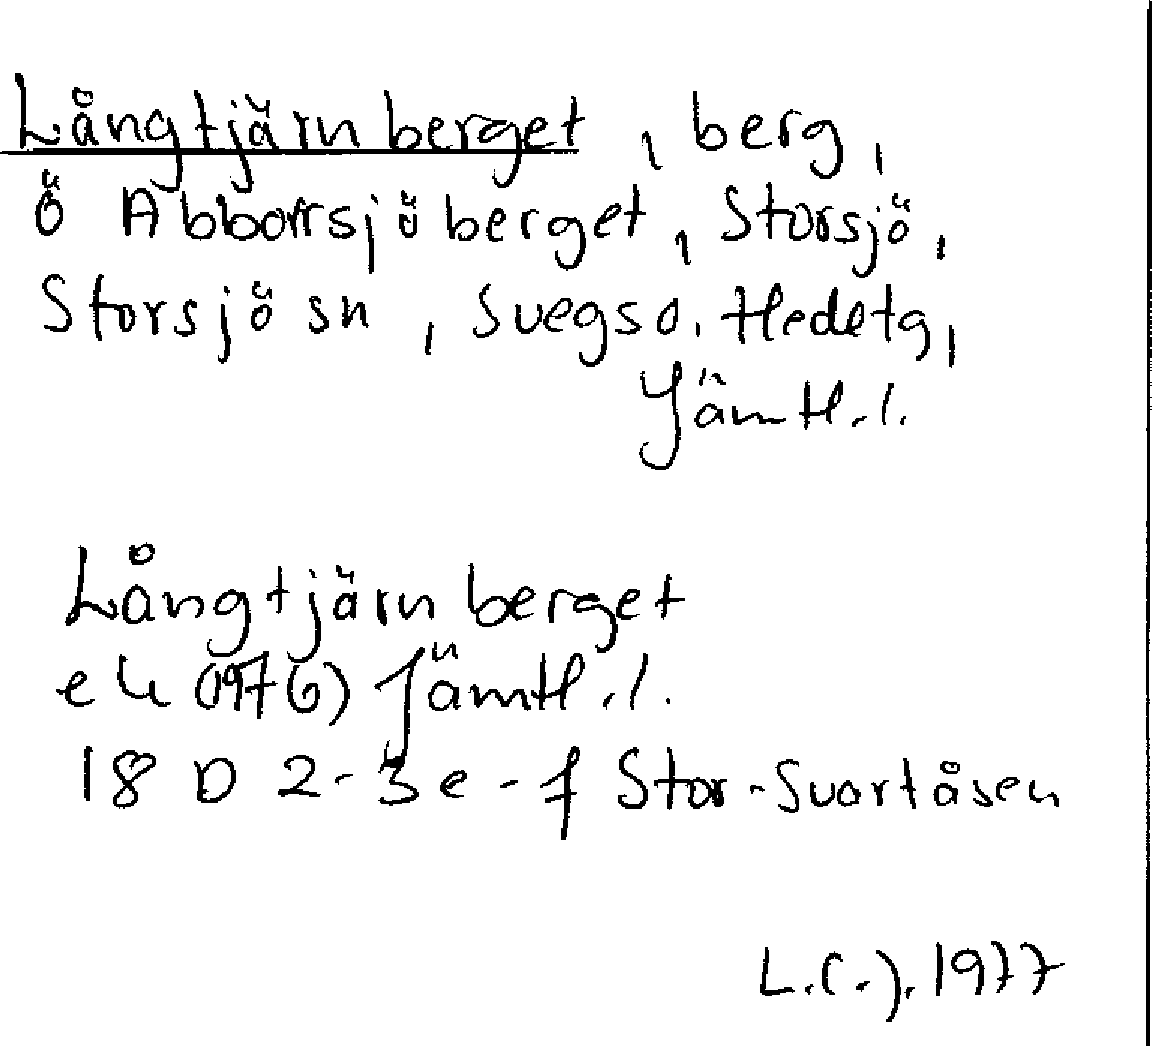 Långtjärnberget, berg,
Ö Abborrsjöberget, Storsjö,
Storsjö sn, Svegs o. Hede tg,
Jämtl. l.
Långtjärnberget
ek (1976) Jämtl. l.
18 D 2-3 e-f Stor-Svartåsen
1977